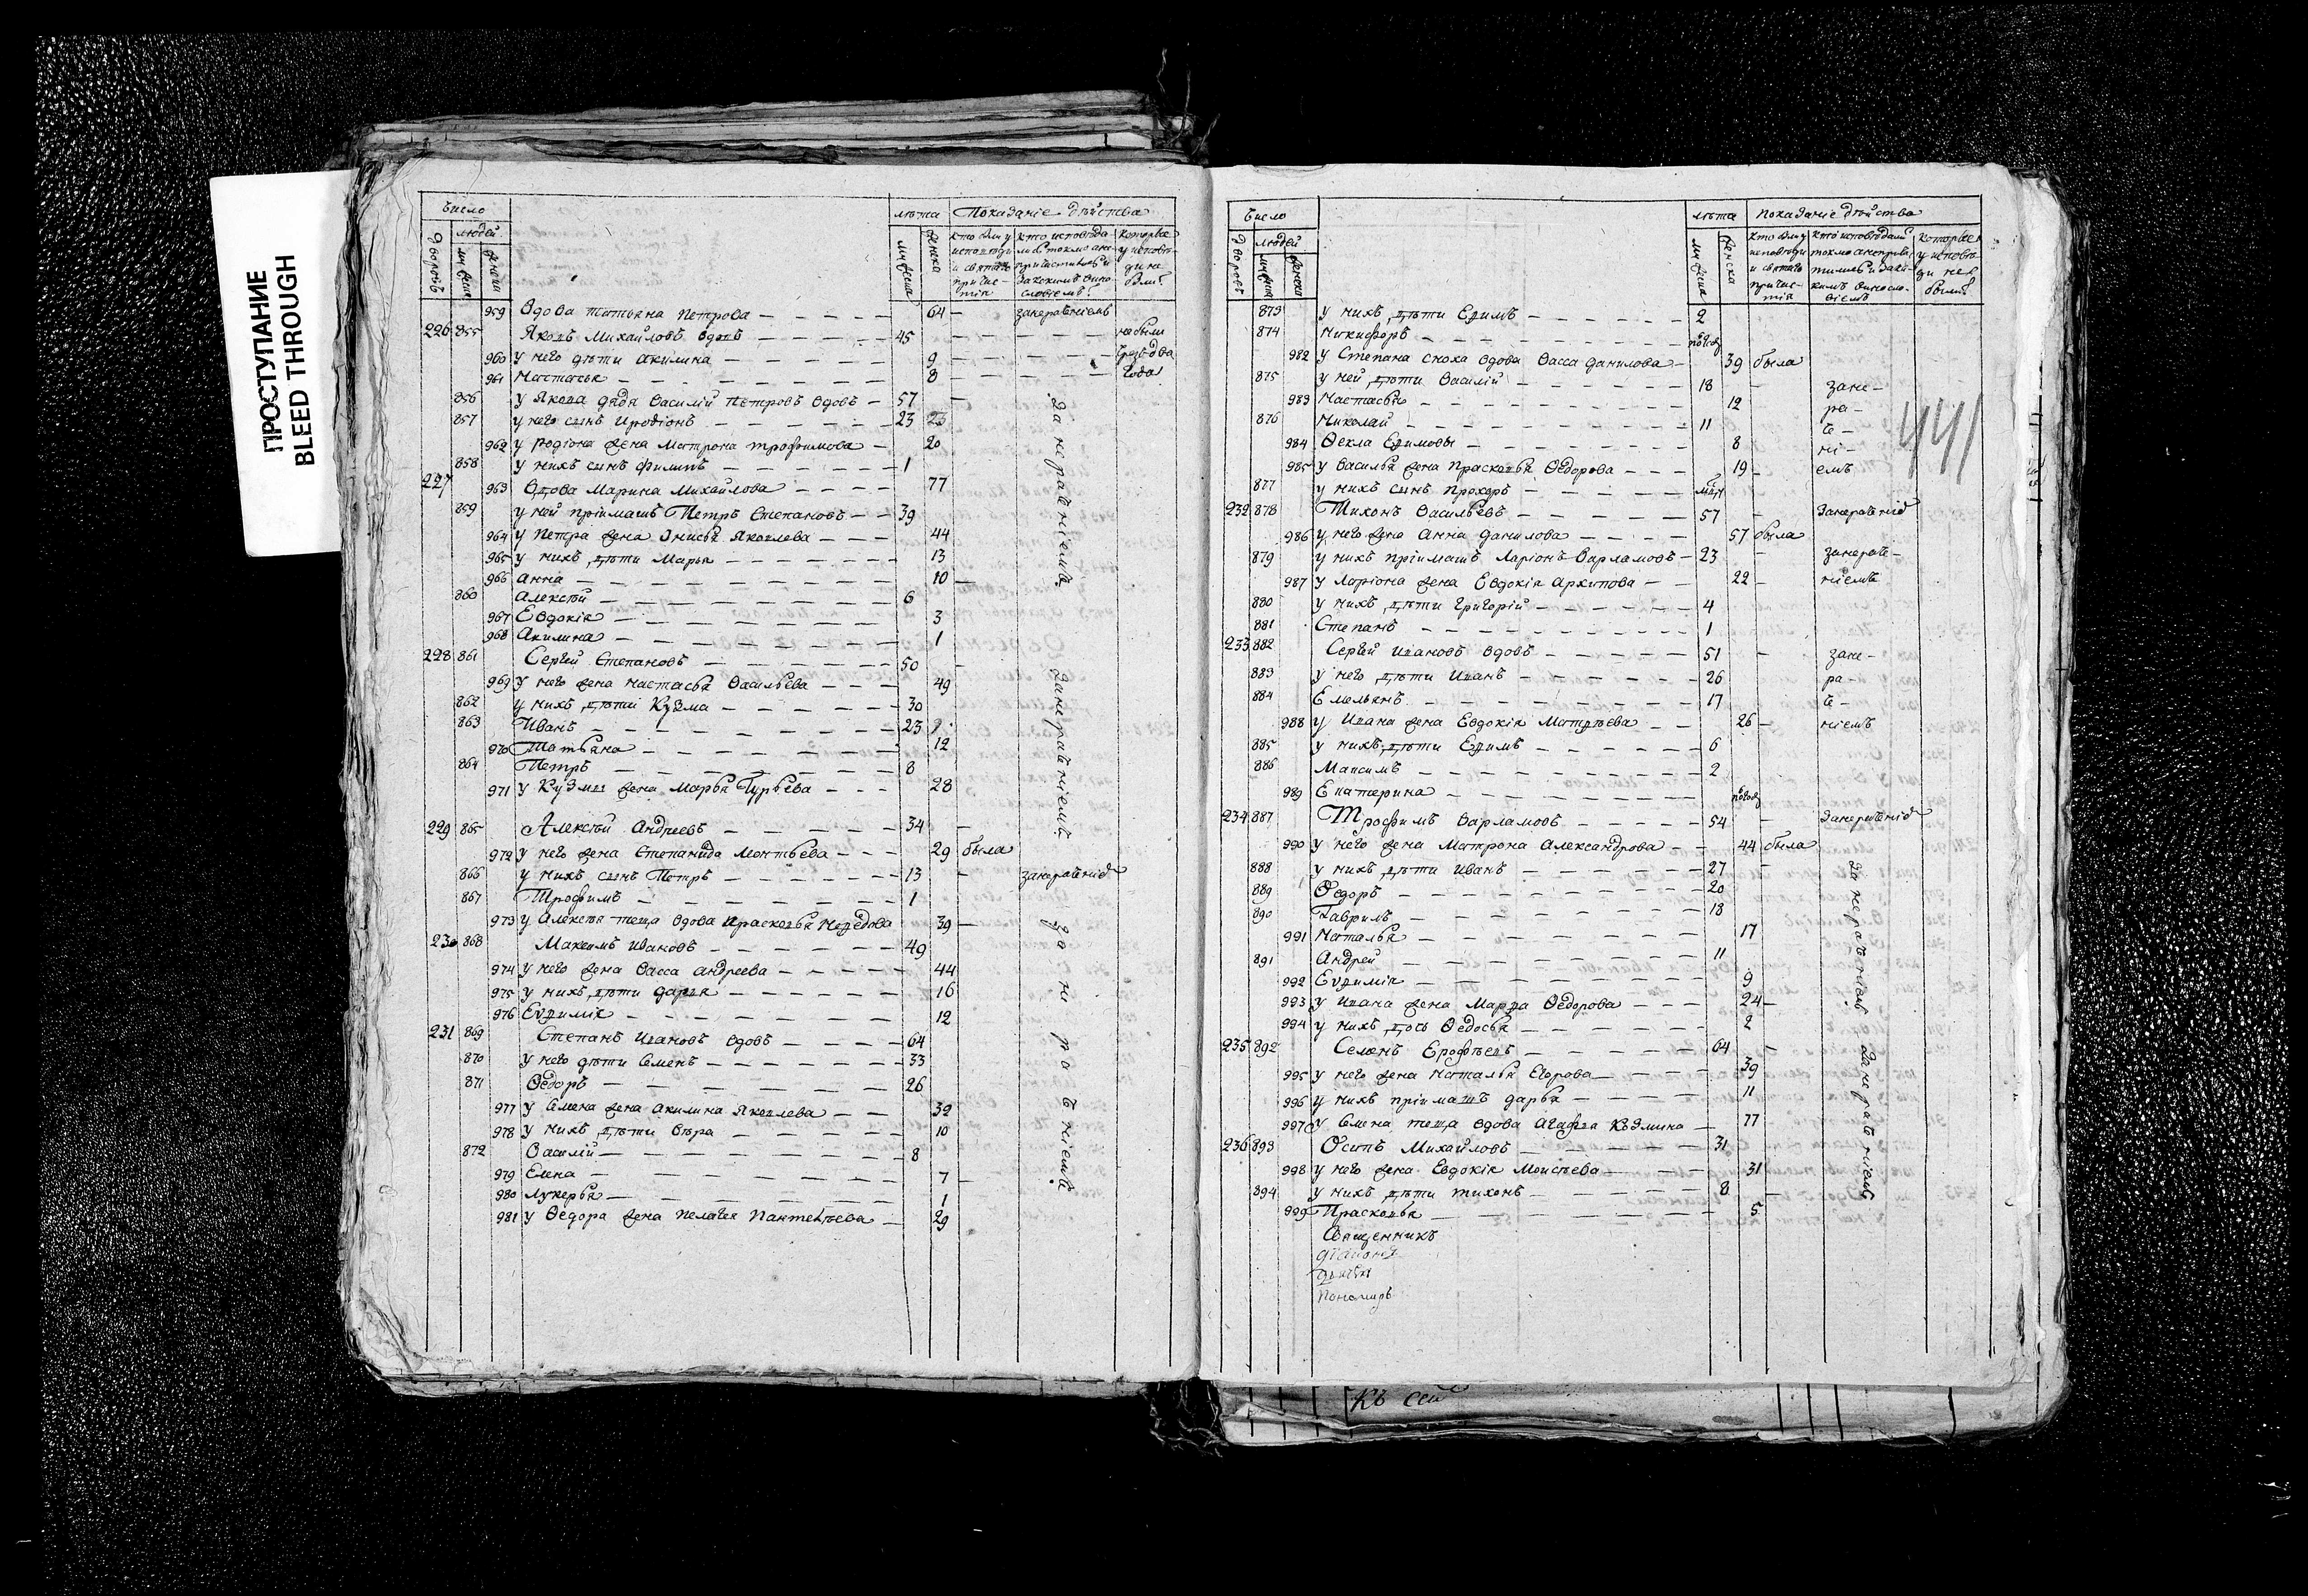 ПРОСТУПАНИЕ
BLEED THROUGH
Число
лѣта Показаніе дѣйства
дворовъ людей мужеска женска
мужеска женска
959 Вдова татьяна петрова 64 занераченіемъ
226 855 Яковъ Михайловъ вдовъ 45 небыли
960 у него дѣти акилина 9 чрезъ два
961 Настасья 8 года
856 у Якова дядя василій петровъ вдовъ 57
857 у него сынъ иродіонъ 23 23
962 у родіона жена матрона трофимова 20
858 у нихъ сынъ филипъ 1
227 963 вдова Марина Михайлова 77
859 у ней пріимышъ Петръ Степановъ 39
964 у Петра жена Анисья Яковлева 44
965 у нихъ дѣти Марья 13
966 анна 10
860 алексѣй 6
967 Евдокія 3
968 Акилина 1
за нераченіемъ
228 861 Сергѣй Степановъ 50
969 у него жена настасья васильева 49
862 у нихъ дѣти Кузма 30
863 Иванъ 23
970 Татьяна 12
864 Петръ 8
971 у Кузмы жена марья Гурьева 28
занераченіемъ
229 865 Алексѣй андреевъ 34
972 у него жена Степанида Леонтьева 29 была
866 у нихъ сынъ Петръ 13 занераченіе
867 Трофимъ 1
973 у алексѣя теща вдова Прасковья 39
230 868 Максимъ ивановъ 49
974 у него жена васса андреева 44
975 у нихъ дѣти дарья 16
976 Евфимія 12
231 869 Степанъ Ивановъ вдовъ 64
870 у него дѣти Семенъ 33
871 Ѳедоръ 26
977 у Семена жена акилина Яковлева 32
978 у нихъ дѣти Вѣра 10
872 Василій 8
979 Елена 7
980 лукерья 1
981 у Ѳедора жена пелагея Пантелѣева 29
занераченіемъ
Число
лѣта показаніе дѣйства
дворовъ людей мужеска женска
мужеска женска
873 у нихъ дѣти Ефимъ 2
874 никифоръ полгод
982 у Степана сноха вдова васса данилова 39 была
875 у ней дѣти василій 18 зане-
983 настасья 12 ра-
876 николай 11 че-
984 Ѳекла Ефимовы 8 ні-
985 у василья жена Прасковья Ѳедорова 19 емъ
877 у нихъ сынъ прохоръ
232 878 Тихонъ васильевъ 57 занераченіе
986 у него жена Анна данилова 57 была
879 у нихъ пріимышъ Ларіонъ Варламовъ 23 занераче-
987 у ларіона жена Евдокія архипова 22 ніемъ
880 у нихъ дѣти григорій 4
881 Степанъ 1
233 882 Сергѣй ивановъ вдовъ 51 зане-
883 у него дѣти Иванъ 26 ра-
884 Емельянъ 17 че-
988 у Ивана жена Евдокія Матвѣева 26 ніемъ
885 у нихъ дѣти Ефимъ 6
886 Максимъ 2
989 Екатерина полгод
234 887 Трофимъ варламовъ 54 занераченіе
990 у него жена Матрона александрова 44 была
888 у нихъ дѣти Иванъ 27
889 Ѳедоръ 20
890 Гаврилъ 18
991 Наталья 17
891 Андрей 11
992 Евфимія 9
993 у Ивана жена Марфа Ѳедорова 24
994 у нихъ дочь Ѳедосья 2
занераченіемъ
235 892 Семенъ Ерофѣевъ 64
995 у него жена наталья Егорова 39
996 у нихъ пріимышъ дарья 11
997 у Семена теща вдова Агафья Кузмина 77
236 893 Осипъ Михайловъ 31
998 у него жена Евдокія Моисѣева 31
894 у нихъ дѣти тихонъ 8
999 Прасковья 5
занераченіемъ
Священникъ
діаконъ
дьячекъ
пономарь
441
Къ сей